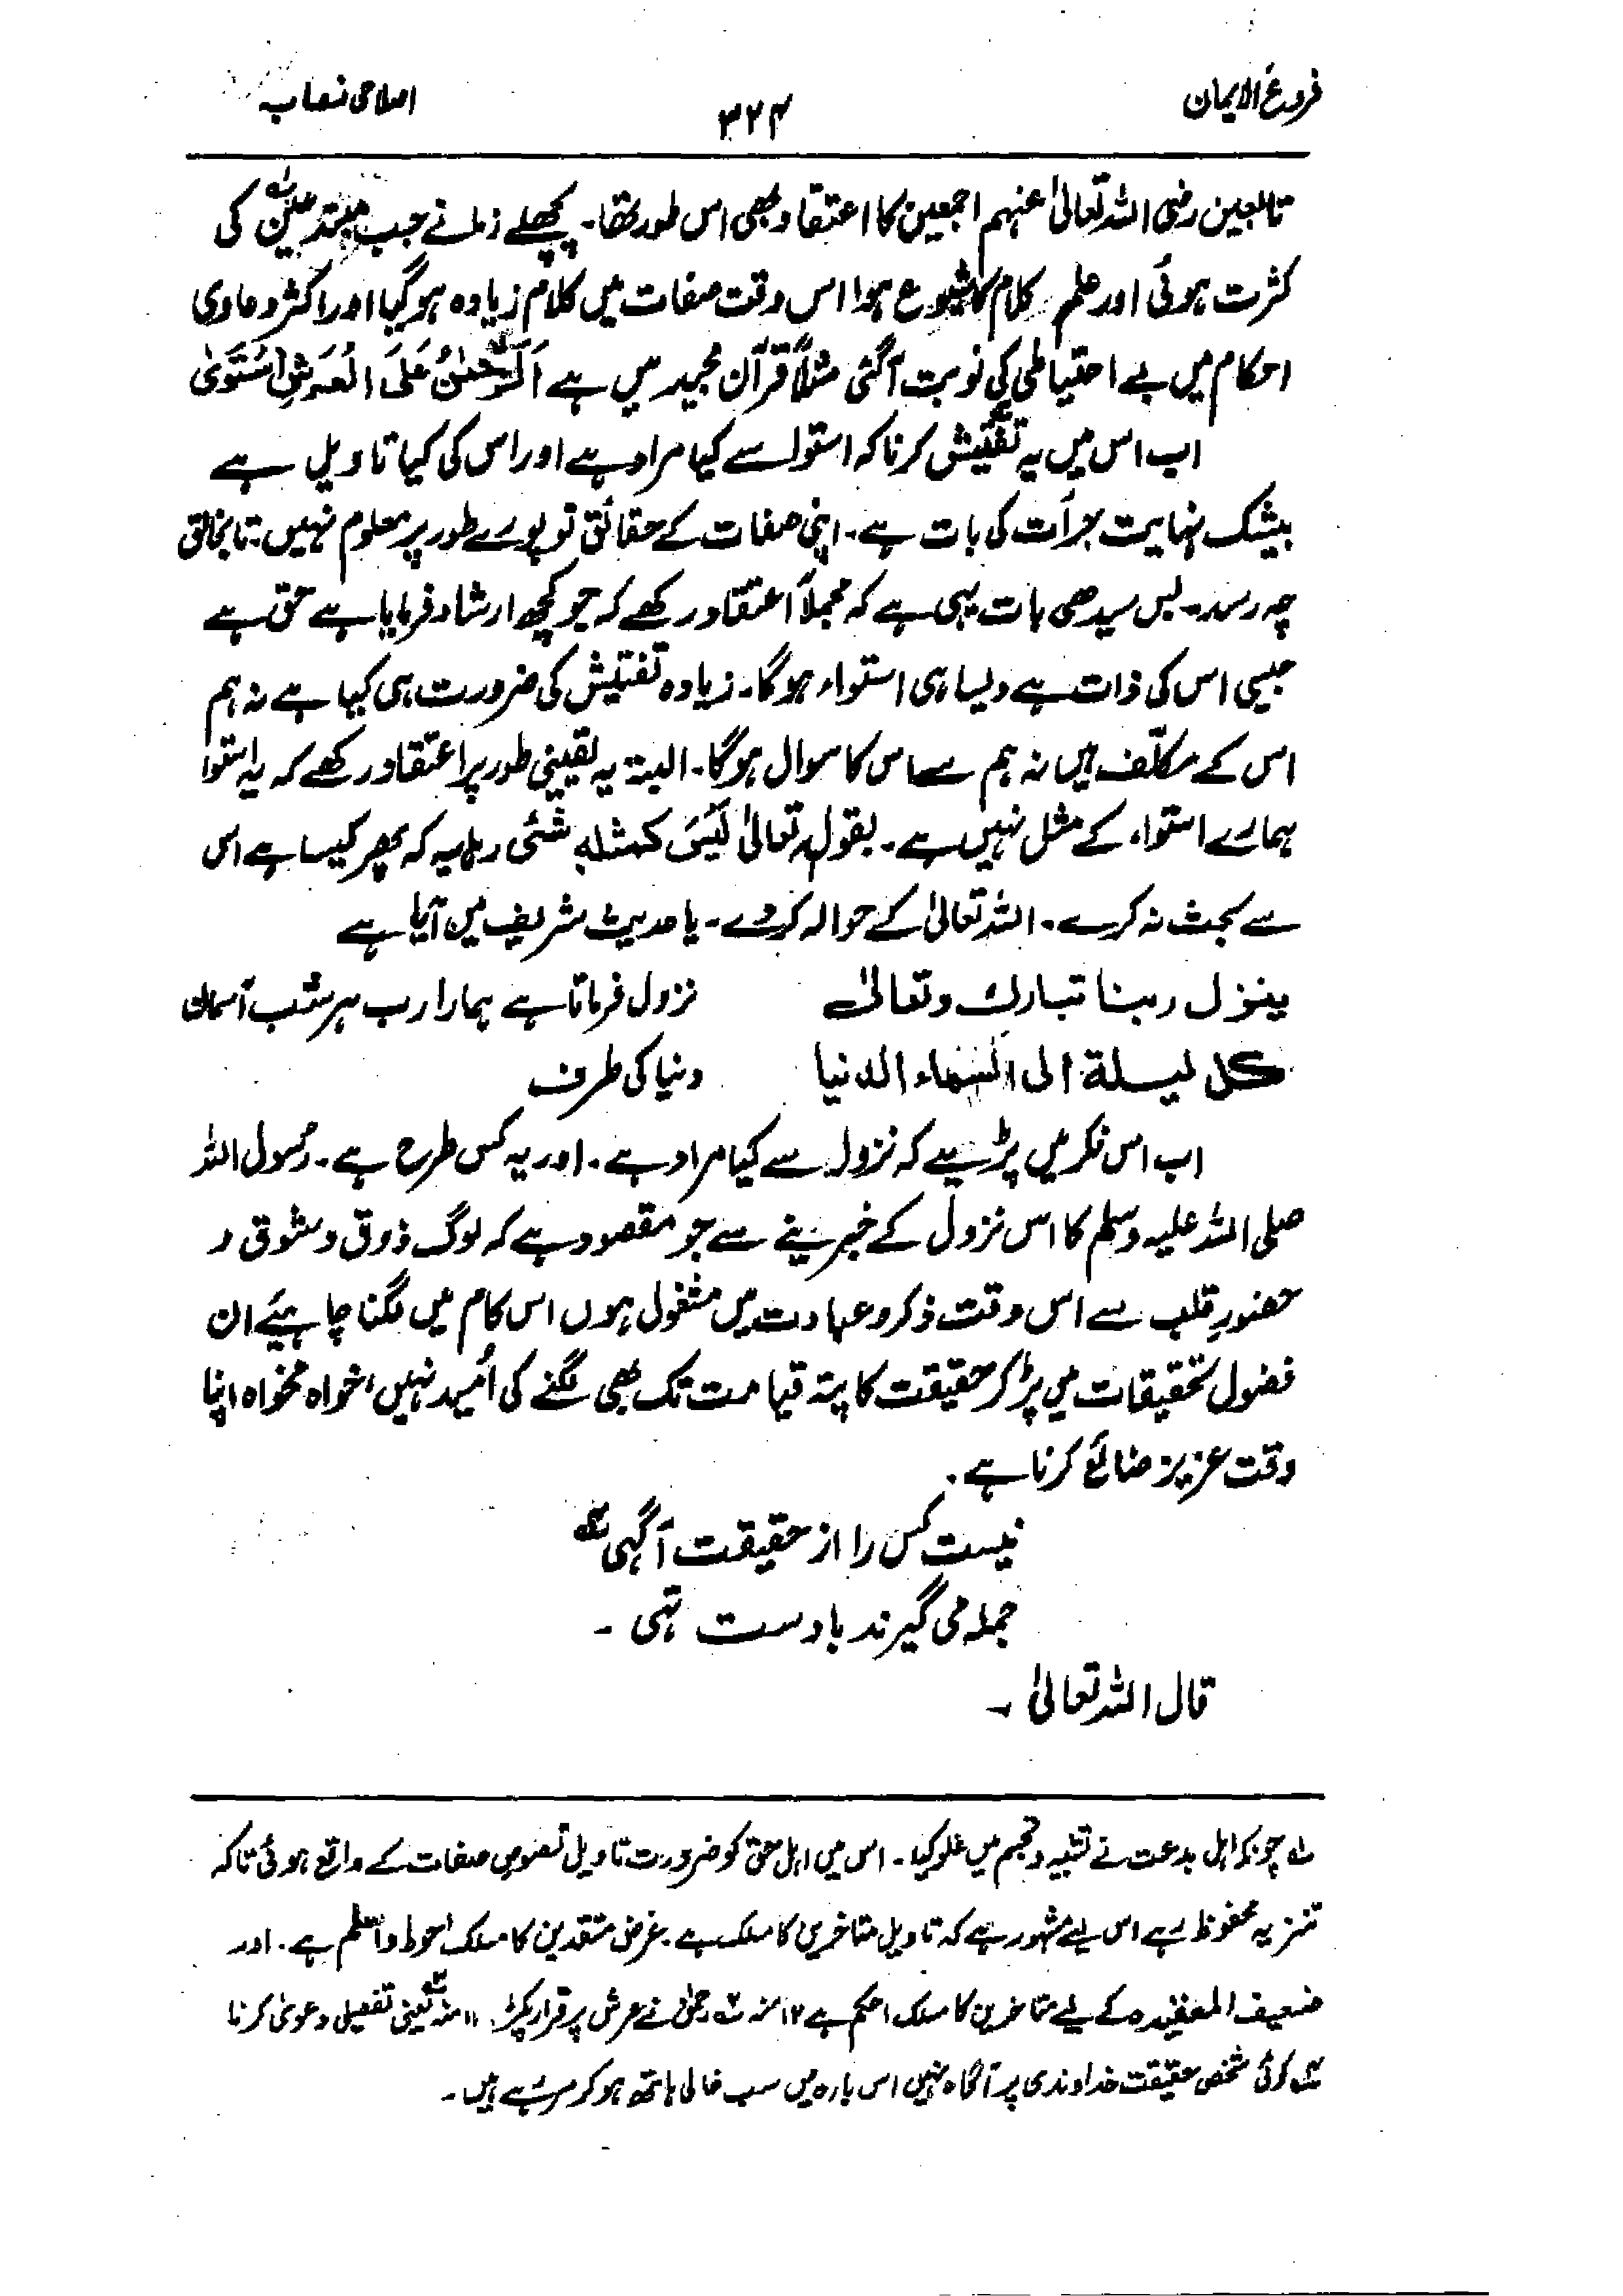 فروع الایمان
۳۲۴
اصلاحی نصاب
تابعین رضی اللہ تعالیٰ عنہم اجمعین کا اعتقاد بھی اس طور تھا۔ پچھلے زمانے جب مبتدعینؔ کی
کثرت ہوئی اور علم کلام کا شیوع ہوا اس وقت صفات میں کلام زیادہ ہو گیا اور اکثر دعاوی
احکام میں بے احتیاطی کی نوبت آگئی مثلاً قرآن مجید میں ہے اَلرَّحْمٰنُ عَلَی الْعَرْشِ اسْتَوٰی
اب اس میں یہ تفتیش کرنا کہ استوا سے کیا مراد ہے اور اس کی کیا تاویل ہے
بیشک نہایت جرأت کی بات ہے۔ اپنی صفات کے حقائق تو پورے طور پر معلوم نہیں۔ تا بخالق
چہ رسد۔ بس سیدھی بات یہی ہے کہ مجملاً اعتقاد رکھے کہ جو کچھ ارشاد فرمایا ہے حق ہے
جیسی اس کی ذات ہے ویسا ہی استواء ہوگا۔ زیادہ تفتیش کی ضرورت ہی کیا ہے نہ ہم
اس کے مکلّف ہیں نہ ہم سے اس کا سوال ہوگا۔ البتہ یہ یقینی طور پر اعتقاد رکھے کہ یہ استوا
ہمارے استواء کے مثل نہیں ہے۔ بقولہ تعالیٰ لَیْسَ کمثلہ شئی رہا یہ کہ پھر کیسا ہے اس
سے بحث نہ کرے۔ اللہ تعالیٰ کے حوالہ کر دے۔ یا حدیث شریف میں آیا ہے
ینزل ربنا تبارک وتعالیٰ نزول فرماتا ہے ہمارا رب ہر شب آسمان
کل لیلة الی السّماء الدنیا دنیا کی طرف
اب اس فکر میں پڑیے کہ نزول سے کیا مراد ہے۔ اور یہ کس طرح ہے۔ رسول اللہ
صلی اللہ علیہ وسلم کا اس نزول کے خبر دینے سے جو مقصود ہے کہ لوگ ذوق و شوق و
حضورِ قلب سے اس وقت ذکر و عبادت میں مشغول ہوں اس کام میں لگنا چاہیئے ان
فضول تحقیقات میں پڑ کر حقیقت کا پتہ قیامت تک بھی لگنے کی اُمید نہیں، خواہ مخواہ اپنا
وقت عزیز ضائع کرنا ہے۔
نیست کس را از حقیقت آگہی
جملہ می گیرند با دست تہی ۔
قال اللہ تعالیٰ ۔
؎ چونکہ اہل بدعت نے تشبیہ و تجسم میں غلو کیا۔ اس میں اہل حق کو ضرورت تاویل نصوص صفات کے واقع ہوئی تاکہ
تنزیہ محفوظ رہے اس لیے مشہور ہے کہ تاویل متاخرین کا مسلک ہے۔ غرض متقدمین کا مسلک احوط و اسلم ہے۔ اور
ضعیف العقیدہ کے لیے متاخرین کا مسلک احکم ہے ۱۲ منہ ؎ رحمٰن نے عرش پر قرار پکڑا۔ ۱۱ منہ یعنی تفصیلی دعویٰ کرنا
کوئی شخص حقیقت خداوندی پر آگاہ نہیں اس بارہ میں سب خالی ہاتھ ہو کر مر رہے ہیں۔